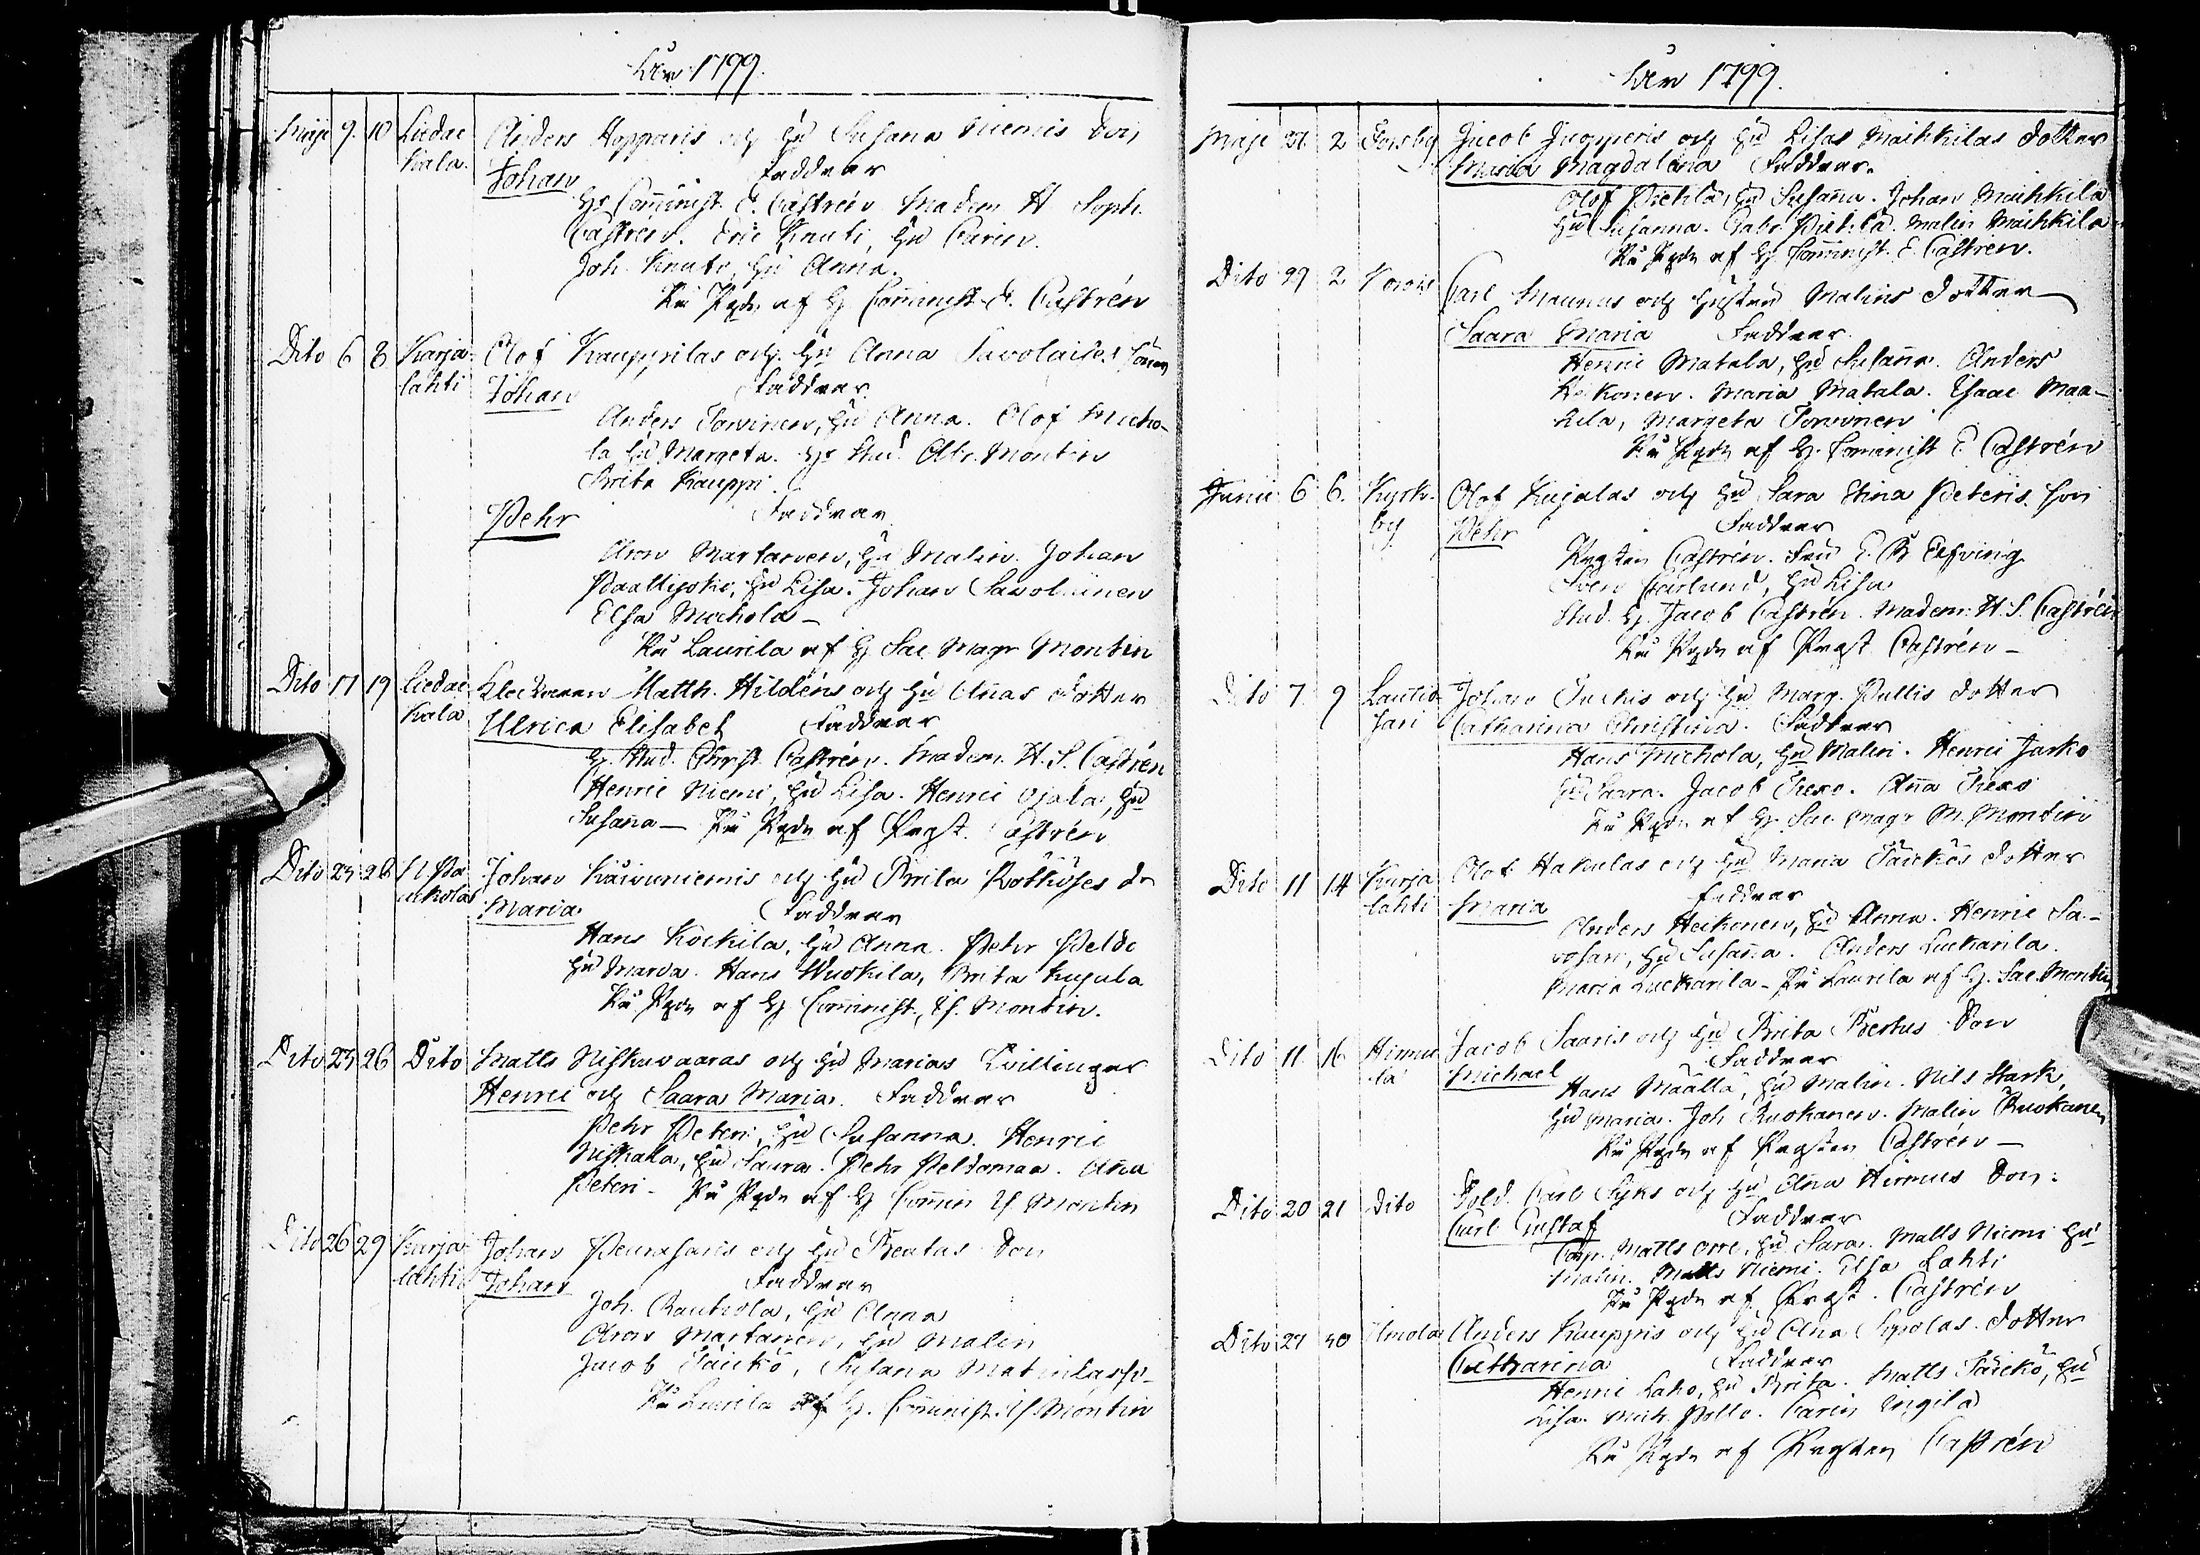 År 1799.
Maji 9. 10 Liedakkala. Anders Hopparis och Hu Susana Niemis Son
Johan Faddrar
Hr Comminist. E. Castrén Madem H Soph.
Castren. Eric Knuti, Hu Carin.
Joh. Knuti, Hu Anna.
af Hr Comminist E. Castrén
Dito 6 8 Karjalahti Olof Kauppilas och Hu Anna Savolaises Söner
Johan Faddrar
Anders Torvinen, Hu Anna. Olof Mucho-
la Hu Margeta. Hr Stud. Abr. Montin
Brita Kauppi.
Pehr Faddrar
Aron Martanen, Hu Malin. Johan
Hu Lisa. Johan Savolainen
Elsa Muchola
Laurila af Hr Sac Magr Montin
Dito 17 19 Liedakkala Klockaren Matth. Hildéns och Hu Annas dotter
Ulrica Elisabet Faddrar
Hr. Stud. Christ. Castrén. Madem. H. S. Castrén
Henric Niemi, Hu Lisa. Henric Ojala, Hu
Susana — af Prost. Castrén
Dito 25 26 Johan Käivuniemis och Hu Brita Rötköses dr
Maria Faddrar
Hans Kockila, Hu Anna. Pehr Peldo
Hu Maria. Hans Wuokila, Brita Kujala
af Hr Comminist, Is. Montin.
Dito 25 26 Dito Matts Niskavaaras och Hu Marias Tvillingar
Henric och Saara Maria. Faddrar
Pehr Peteri, Hu Susanna. Henric
Niskala, Hu Saara. Pehr Peldomaa. Aña
Peteri. af Hr Commin Is Montin
Dito 26 29 Karjalahti Johan Peurasaris och Hu Beatas Son
Johan Faddrar
Joh. Rautiola, Hu Anna
Aron Martanen, Hu Malin
Jacob Täickö, Susana Matinlassi
Laurila af Hr. Comminist. Is Montin
År 1799.
Maji 31. 2 Forsby Jacob Juopperis och Hu Lisas Maihkilas dotter
Maria Magdalena Faddrar.
Olof Piekila, Hu Susana. Johan Maihkila
Hu Susanna. Gabr Piekila. Malin Maihkila
af Hr. Comminist. E. Castren.
Dito 29 2 Carl Maunus och Hustru Malins dotter
Saara Maria Faddrar
Henric Matala, Hu Susana. Anders
Keikonen. Maria Matala. Isaac Maa-
Margeta Torvinen
af Hr. Comminist E. Castrén
Junii 6 6. Kyrkby Olof Kujalas och Hu Sara Stina Peteris Son
Pehr Faddrar
Prosten Castrén. Fru E. B Elfving
Sven Carlund, Hu Lisa
Stud. Hr Jacob Castrén. Madem. H. S. Castrén
af Prost Castrén
Dito 7 9 Lautiosari Johan Juckis och Hu Marg. Pullis dotter
Catharina Christina. Faddrar
Hans Muchola, Hu Malin. Henric Jarko
Hu Saara. Jacob Ikexo. Aña Ikexo
af Hr. Sac Magr M. Montin
Dito 11 14 Karjalahti Olof Hakulas och Hu Maria Täickös dotter
Maria Faddrar
Anders Heikonen, Hu Anna. Henric Sa-
Hu Susana. Anders Luckarila.
Maria Luckarila. Laurila af Hr. Sac. Montin
Dito 11 16 Hirmula Jacob Saaris och Hu Brita Bertus Son
Michael Faddrar
Hans Määttä, Hu Malin. Nils Stark,
Hu Maria. Joh Ruokanen. Malin Ruokanen
af Prosten Castrén
Dito 20 21 Dito Sold. Carl Syks och Hu Aña Hirmus Son:
Carl Gustaf Faddrar
Corp. Matts Orre, Hu Sara. Matts Niemi Hu
Malin. Matts Niemi. Elsa Lahti
af Prost. Castrén
Dito 27 30 Anders Kauppis och Hu Aña Sipolas dotter
Catharina Faddrar
Henric Laho, Hu Brita. Matts Täickö, Hu
Lisa. Mich. Pello. Carin Ingila
af Prosten Castrén